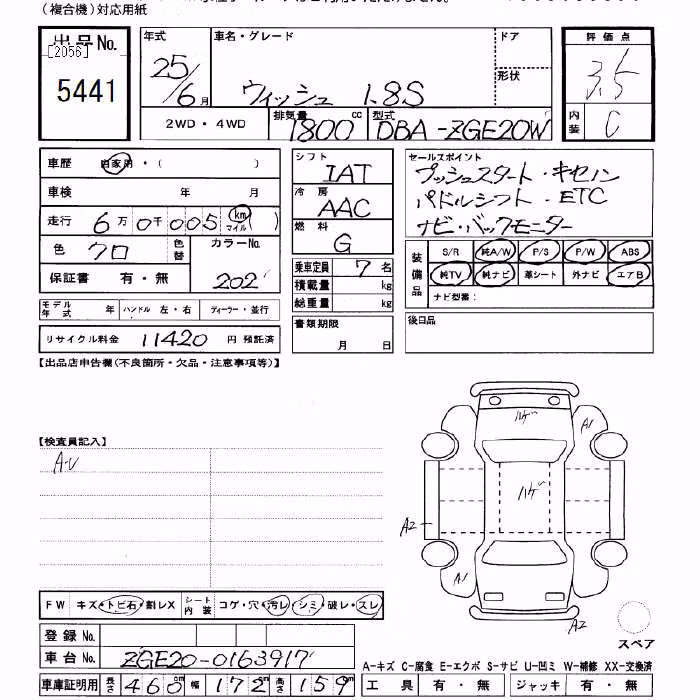 (複合機)対応用紙
出品No.
[2056]
5441
年式
25/6月
車名・グレード
ウィッシュ 1.8S
ドア
形状
2WD・4WD
排気量
1800 cc
型式
DBA-ZGE20W
評価点
3.5
内装
C
車歴 自家用・( )
車検 年 月
走行 6万0千005 km マイル
色 クロ 色替
カラーNo.
202
保証書 有・無
モデル年式 年 ハンドル 左・右 ディーラー・並行
リサイクル料金 11420 円 預託済
シフト
IAT
冷房
AAC
燃料
G
乗車定員 7名
積載量 kg
総重量 kg
書類期限
月 日
セールスポイント
プッシュスタート・キセノン
パドルシフト・ETC
ナビ・バックモニター
装備品
S/R 純A/W P/S P/W ABS
純TV 純ナビ 革シート 外ナビ エアB
ナビ型番:
後日品
【出品店申告欄(不良箇所・欠品・注意事項等)】
【検査員記入】
A-U
ハゲ
A1
ハゲ
A2
A1
A2
スペア
FW キズ・トビ石・割レX シート内装 コゲ・穴・汚レ・シミ・破レ・スレ
登録No.
車台No. ZGE20-0163917
車庫証明用 長さ 460cm 幅 172cm 高さ 159cm
A-キズ C-腐食 E-エクボ S-サビ U-凹ミ W-補修 XX-交換済
工具 有・無 ジャッキ 有・無